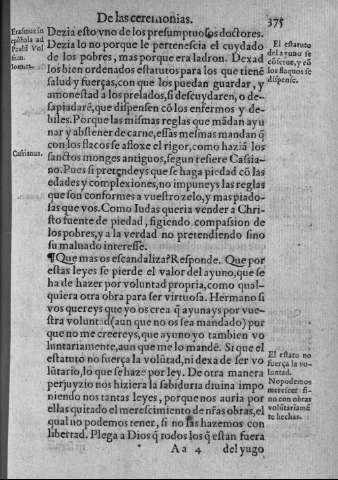 De las ceremonias.
375
Erasmus in
epistola ad
Dezia esto vno de los presumptuosos doctores.
Dezia lo no porque le pertenescia el cuydado
de los pobres, mas porque era ladron. Dexad
los bien ordenados estatutos para los que tienẽ
salud y fuerças, con que los puedan guardar, y
amonestad a los prelados, si descuydaren, o de-
sapiadarẽ, que dispensen cõ los enfermos y de-
biles. Porque las mismas reglas que mãdan ayu
nar y abstener de carne, essas mesmas mandan q̃
con los flacos se afloxe el rigor, como haziã los
sanctos monges antiguos, segun refiere Cassia-
no. Pues si pretendeys que se haga piedad cõ las
edades y complexiones, no impuneys las reglas
que son conformes a vuestro zelo, y mas piado-
sas que vos. Como Iudas queria vender a Chri-
sto fuente de piedad, figiendo compassion de
los pobres, y a la verdad no pretendiendo sino
su maluado interesse.
El estatuto
del ayuno se
cõserue, y cõ
los flaquos se
dispense.
Cassianus.
¶Que mas os escandaliza? Responde. Que por
estas leyes se pierde el valor del ayuno, que se
ha de hazer por voluntad propria, como qual-
quiera otra obra para ser virtuosa. Hermano si
vos quereys que yo os crea q̃ ayunays por vue-
stra voluntad (aun que no os sea mandado) por
que no me creereys, que ayuno yo tambien vo
luntariamente, aun que me lo mandẽ. Si que el
estatuto no fuerça la volũtad, ni dexa de ser vo
lũtario, lo que se haze por ley. De otra manera
perjuyzio nos hiziera la sabiduria diuina impo
niendo nos tantas leyes, porque nos auria por
ellas quitado el merescimiento de nr̃as obras, el
qual no podemos tener, si no las hazemos con
libertad. Plega a Dios q̃ todos los q̃ estan fuera
El estato no
fuerça la vo-
luntad.
No podemos
merescer si-
no con obras
volũtariamẽ
te hechas.
Aa 4 del yugo